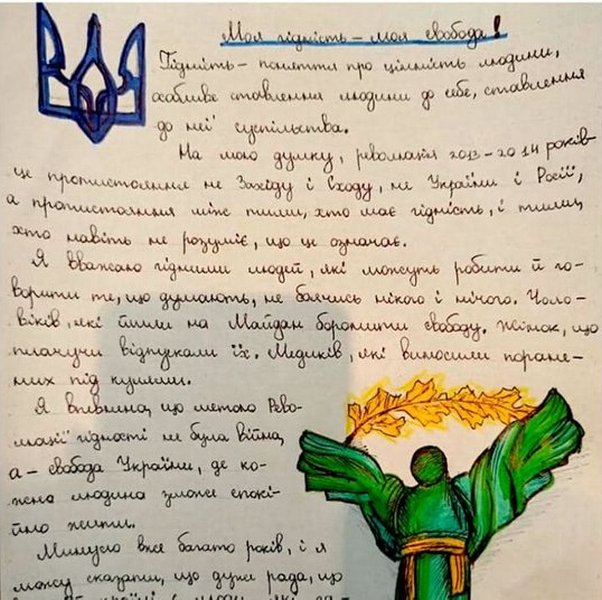 Моя гідність – моя свобода!
Гідність – поняття про цінність людини,
особливе ставлення людини до себе, ставлення
до неї суспільства.
На мою думку, революція 2013–2014 років –
це протистояння не Заходу і Сходу, не України і Росії,
а протистояння між тими, хто має гідність, і тими,
хто навіть не розуміє, що це означає.
Я вважаю гідними людей, які можуть робити й го-
ворити те, що думають, не боячись нікого і нічого. Чоло-
віків, які йшли на Майдан боронити свободу. Жінок, що
плачучи відпускали їх. Медиків, які виносили поране-
них під кулями.
Я впевнена, що метою Рево-
люції гідності не була війна,
а – свобода України, де ко-
жна людина зможе спокі-
йно жити.
Минуло вже багато років, і я
можу сказати, що дуже рада, що